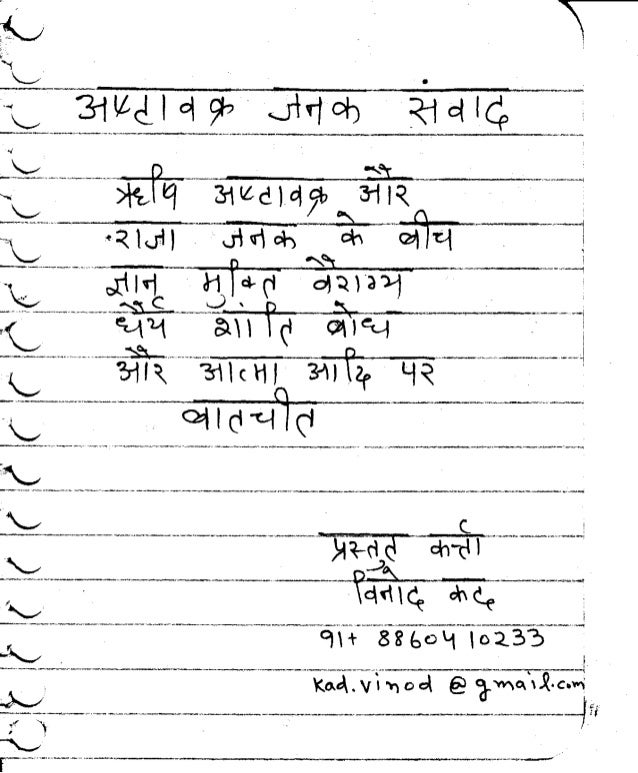 अष्टावक्र जनक संवाद
ऋषि अष्टावक्र और
राजा जनक के बीच
ज्ञान मुक्ति वैराग्य
धैर्य शांति बोध
और आत्मा आदि पर
बातचीत
प्रस्तुत कर्त्ता
विनोद कद
91+ 8860410233
kad.vinod@gmail.com